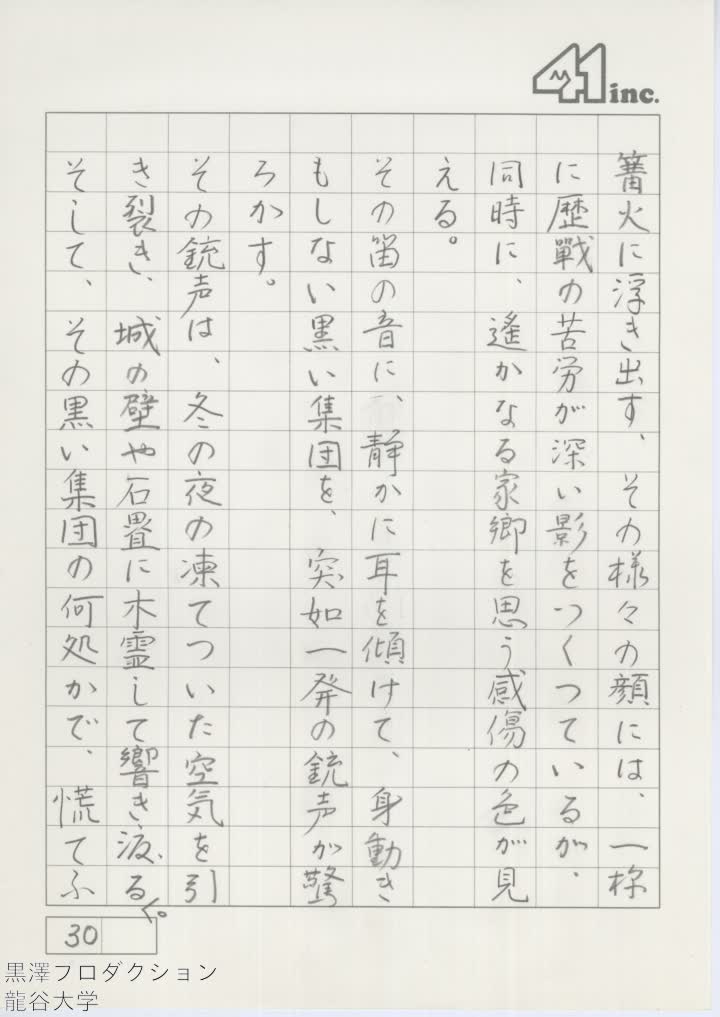 41 inc.
篝火に浮き出す、その様々の顔には、一様
に歴戰の苦労が深い影をつくつているが、
同時に、遙かなる家郷を思う感傷の色が見
える。
その笛の音に、静かに耳を傾けて、身動き
もしない黒い集団を、突如一発の銃声が驚
ろかす。
その銃声は、冬の夜の凍てついた空気を引
き裂き、城の壁や石畳に木霊して響き渡る。
そして、その黒い集団の何処かで、慌てふ
30
黒澤プロダクション
龍谷大学